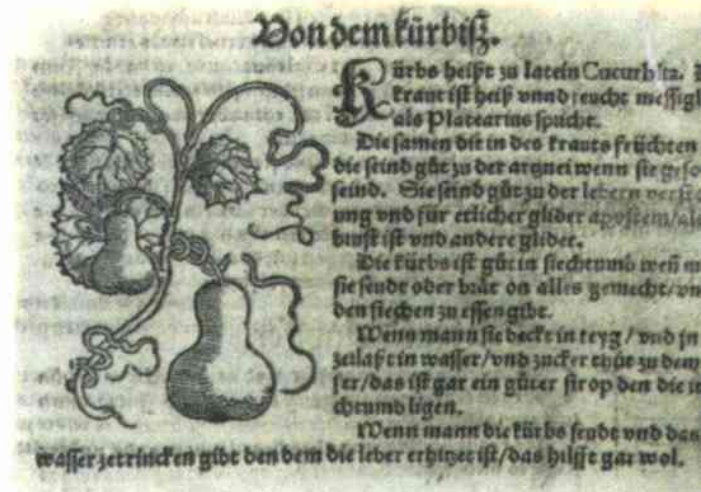 Von dem kürbiß.
Kürbs heißt zu latein Cucurbita.
kraut ist heiß vnnd feucht messigl
als Platearius spricht.
Die samen dit in des krauts früchten
die seind gůt zu der artznei wenn sie
seind. Sie seind gůt zu der lebern
ung vnd für etlicher glider apostem/als
brust ist vnd andere glider.
Die kürbs ist gůt in siechtumb weñ
sie seudt oder brat on alles gemecht/
den siechen zu essen gibt.
Wenn mann sie deckt in teyg/ vnd
in wasser/vnd zucker thůt zu dem
ser/das ist gar ein gůter sirop den die
chtumb ligen.
Wenn mann die kürbs seudt vnd das
wasser zetrincken gibt den dem die leber erhitzet ist/das hilfft gar wol.